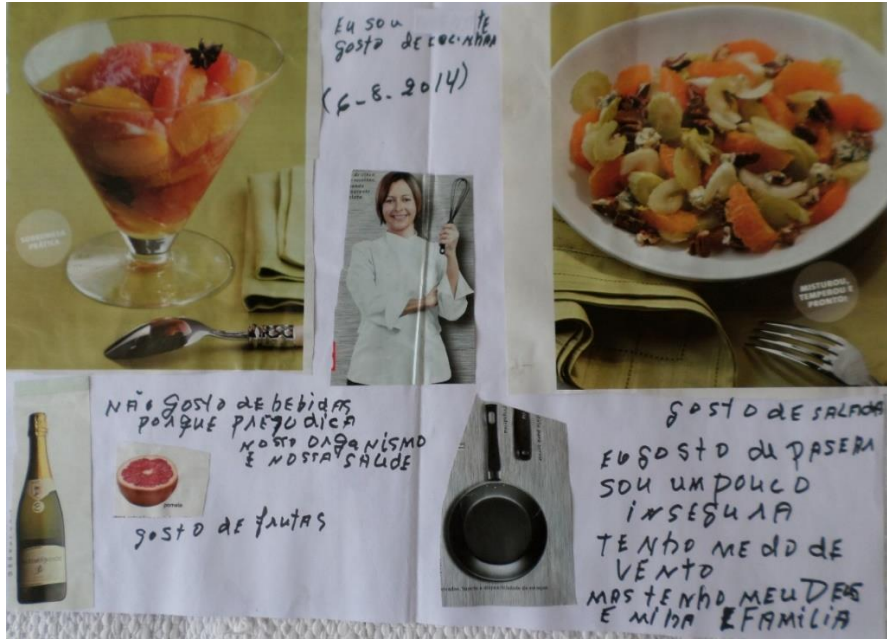 EU SOU TE
GOSTO DE COCINHAR
(6-8-2014)
SOBREMESA
PRÁTICA
MISTUROU,
TEMPEROU E
PRONTO!
NÃO GOSTO DE BEBIDAS
PORQUE PREGUDICA
NOSSO ORGANISMO
E NOSSA SAÚDE
GOSTO DE FRUTAS
GOSTO DE SALADA
EU GOSTO DE PASEAR
SOU UM POUCO
INSEGURA
TENHO MEDO DE
VENTO
MAS TENHO MEU DEUS
E MINHA FAMILIA